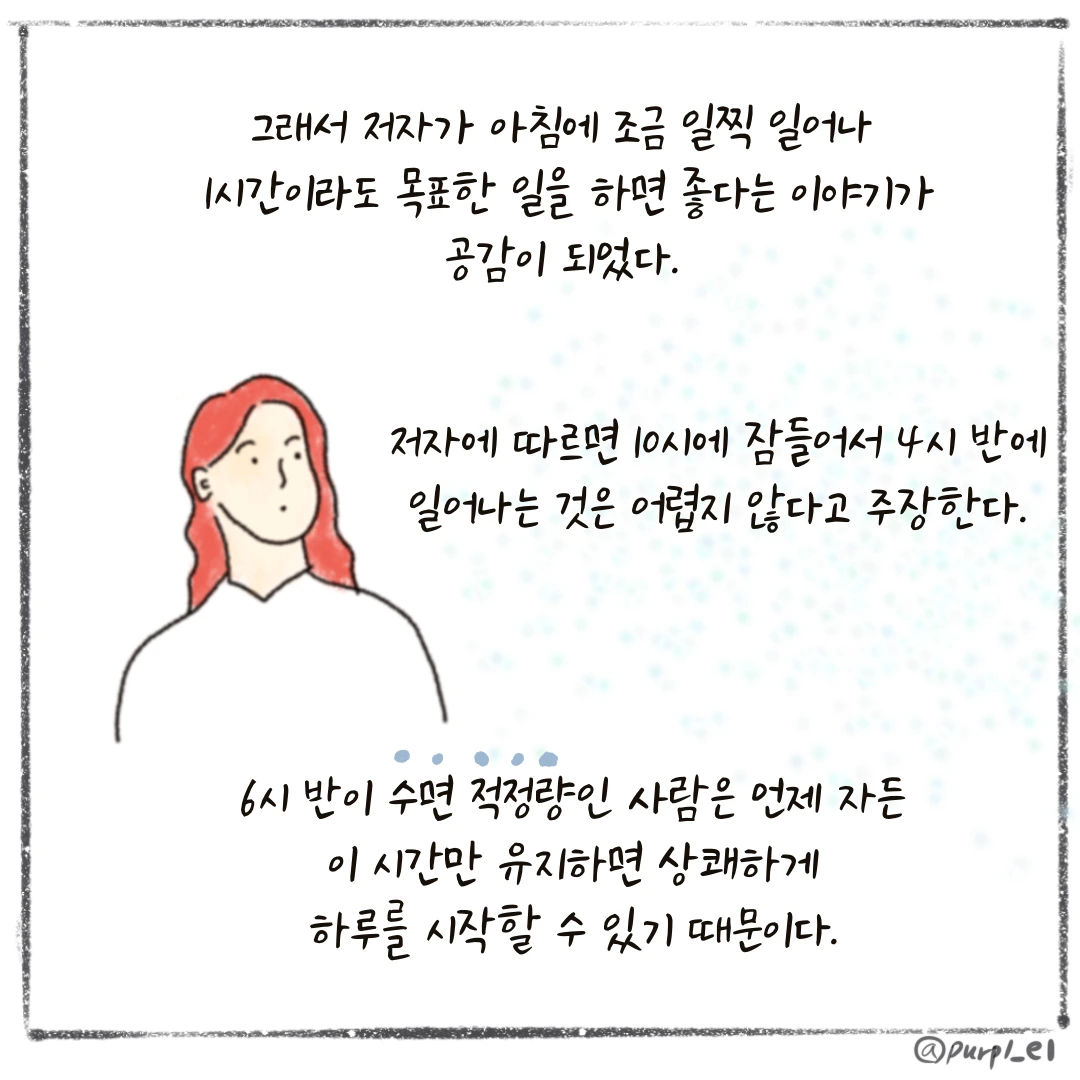 그래서 저자가 아침에 조금 일찍 일어나
1시간이라도 목표한 일을 하면 좋다는 이야기가
공감이 되었다.
저자에 따르면 10시에 잠들어서 4시 반에
일어나는 것은 어렵지 않다고 주장한다.
6시 반이 수면 적정량인 사람은 언제 자든
이 시간만 유지하면 상쾌하게
하루를 시작할 수 있기 때문이다.
@purpl_el